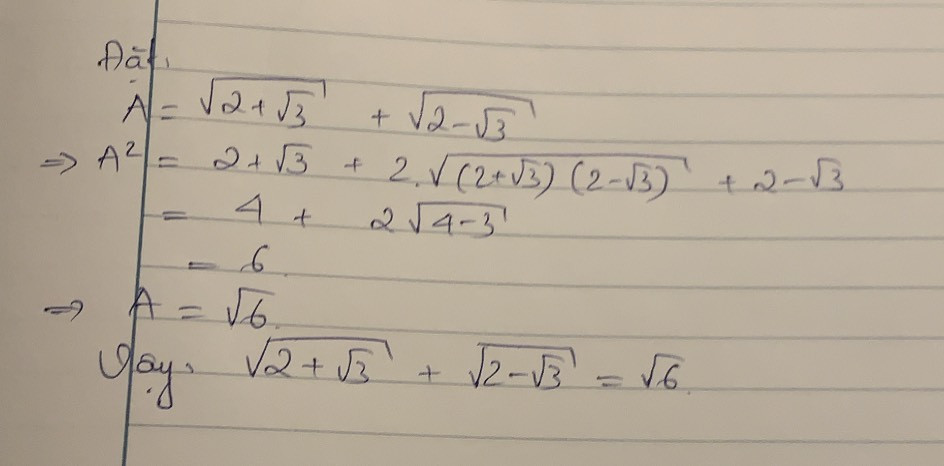 Đặt,
A = √(2+√3) + √(2-√3)
=> A² = 2+√3 + 2.√((2+√3)(2-√3)) + 2-√3
= 4 + 2√(4-3)
= 6
=> A = √6.
Vậy, √(2+√3) + √(2-√3) = √6.